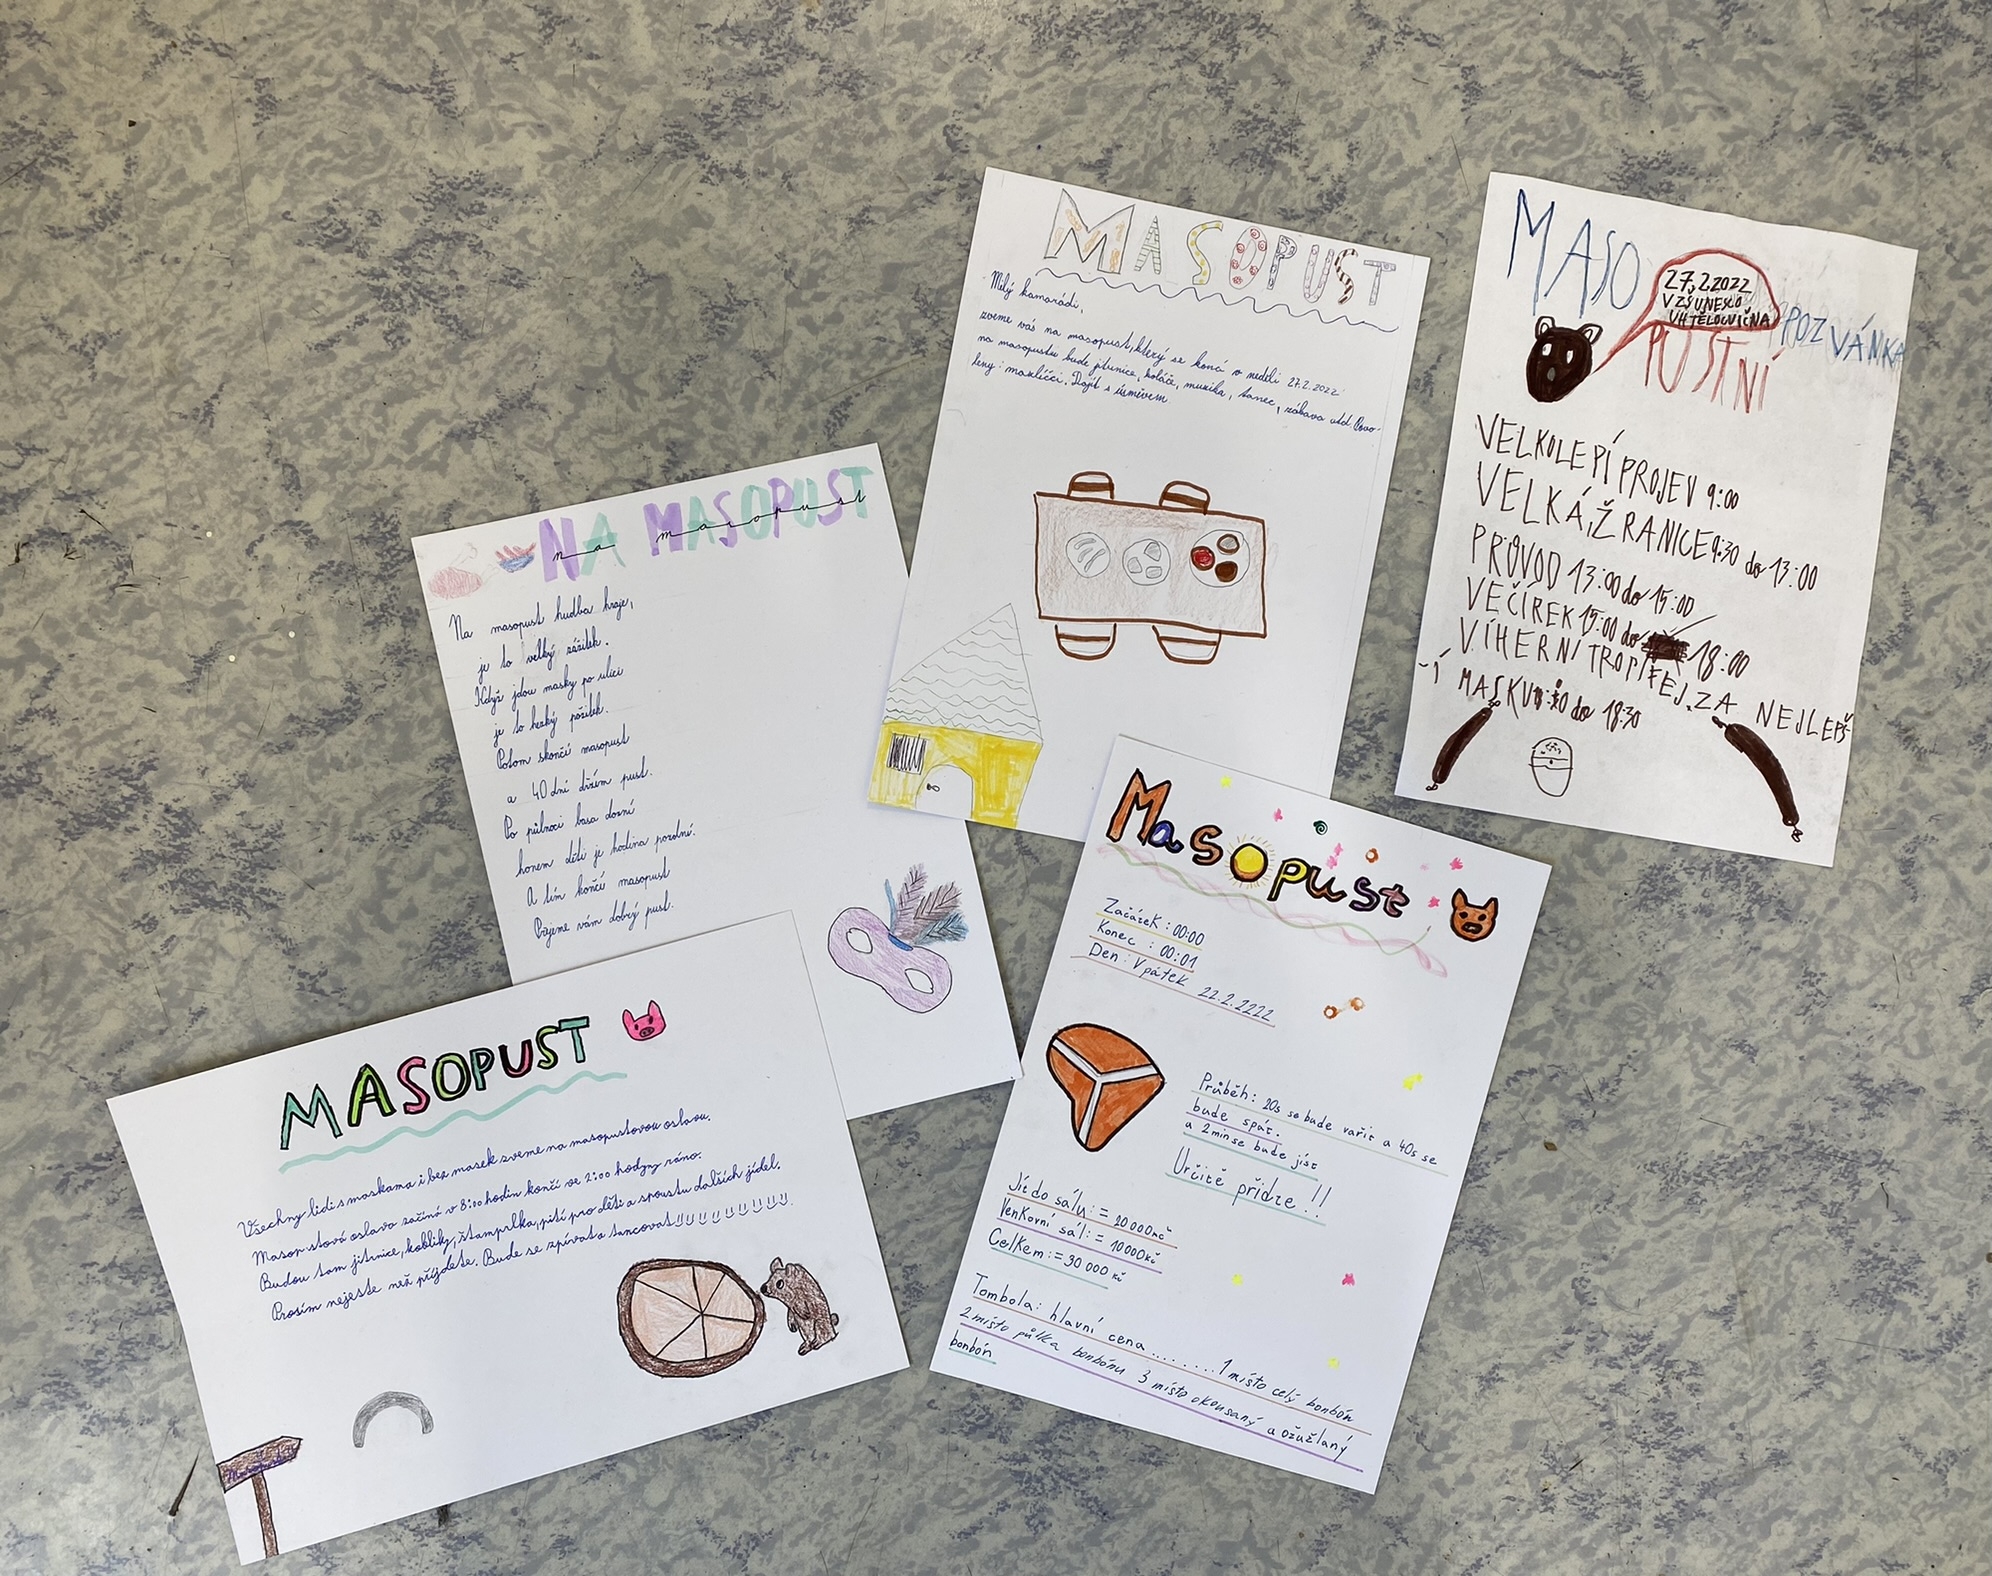 MASOPUST
Milý kamarádi,
zveme vás na masopust, který se koná v neděli 27.2.2022
na masopustu bude jitrnice, koláče, muzika, tanec, zábava atd. Povo-
leny: mazlíčci. Dojít s úsměvem
MASO
27.2.2022
V ZŠ UNESCO
UH
PUSTNÍ
POZVÁNKA
VELKOLEPÍ PROJEV 9:00
VELKÁ ŽRANICE 9:30 do 13:00
PRŮVOD 13:00 do 15:00
VEČÍREK 15:00 do 18:00
VÍHERNÍ TROFEJ ZA NEJLEPŠ-
-Í MASKU do 18:30
NA MASOPUST
na masopust
Na masopust hudba hraje,
je to velký zážitek.
Když jdou masky po ulici
je to hezký požitek.
Potom skončí masopust
a 40 dní držím pust.
Po půlnoci basa dozní
honem děti je hodina pozdní.
A tím končí masopust
Přejeme vám dobrý pust.
MASOPUST
Všechny lidi s maskama i bez masek zveme na masopustovou oslavu.
Masopustová oslava začíná v 8:00 hodin končí ve 2:00 hodyny ráno.
Budou tam jitrnice, kobliky, štamprlka, pití pro děti a spoustu dalších jídel.
Prosím nejeste než příjdete. Bude se zpívat a tancovat!!!!!!!!!!
Masopust
Začátek: 00:00
Konec : 00:01
Den: V pátek 22.2.2222
Průběh: 20s se bude vařit a 40s se
bude spát.
a 2min se bude jíst
Určitě přidte!!
Jít do sálu: = 20 000 kč
Venkovní sál: = 10 000 kč
Celkem: = 30 000 kč
Tombola: hlavní cena ........ 1 místo celý bonbón
2 místo půlka bonbónu 3 místo okousaný a ožužlaný
bonbón